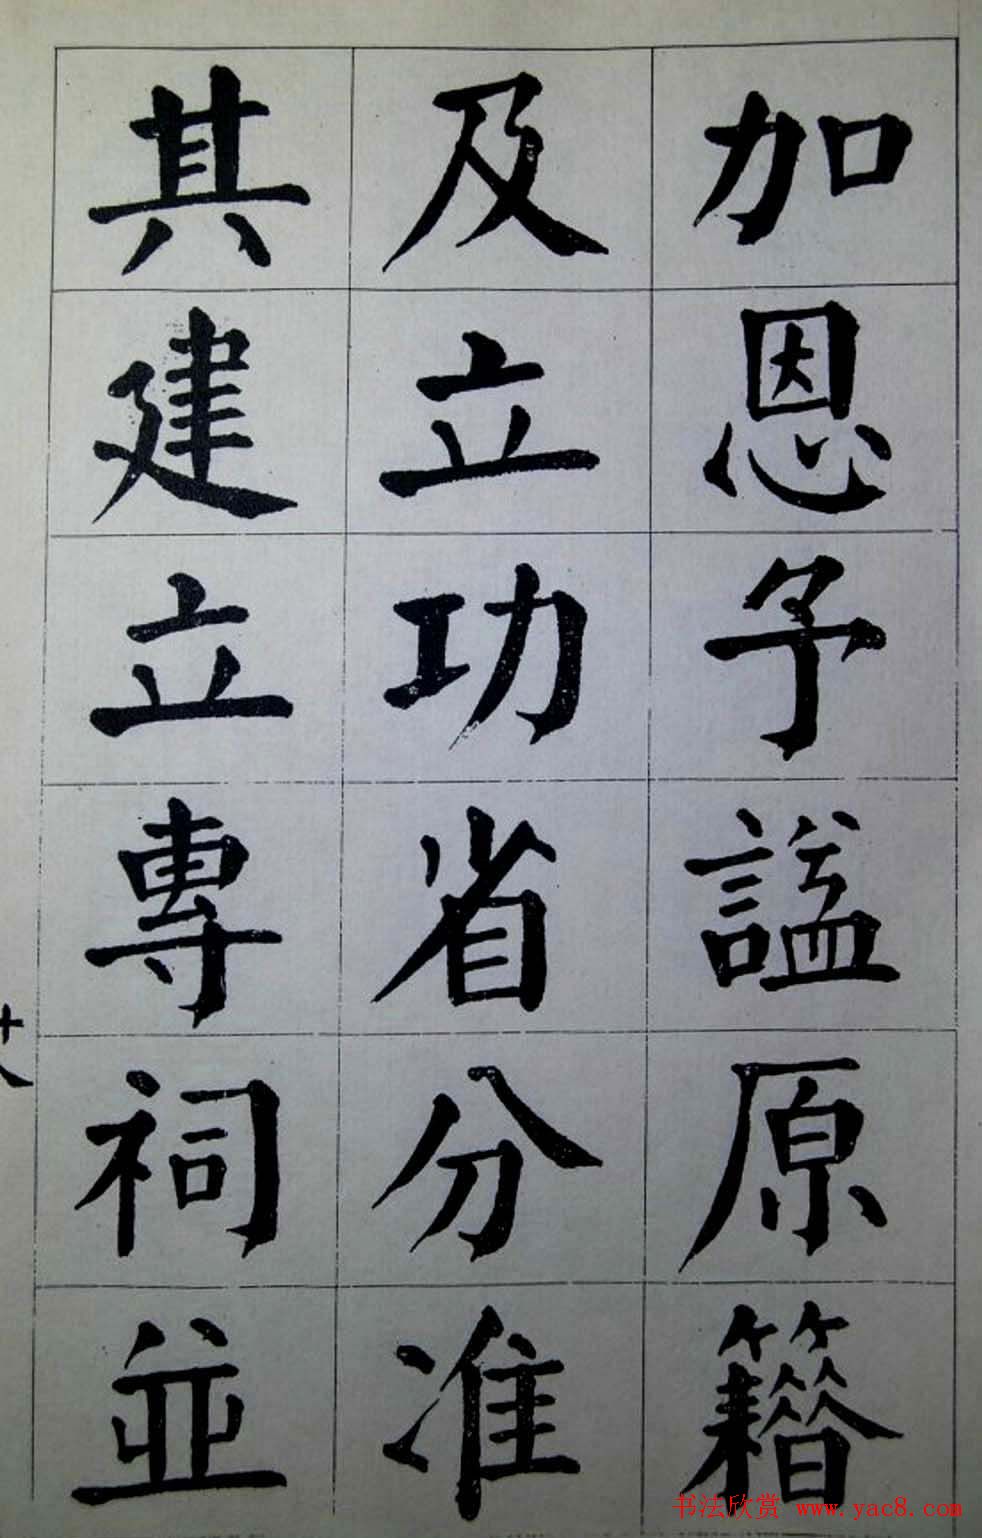 加恩予謚原籍
及立功省分准
其建立專祠並
十八
书法欣赏 www.yac8.com